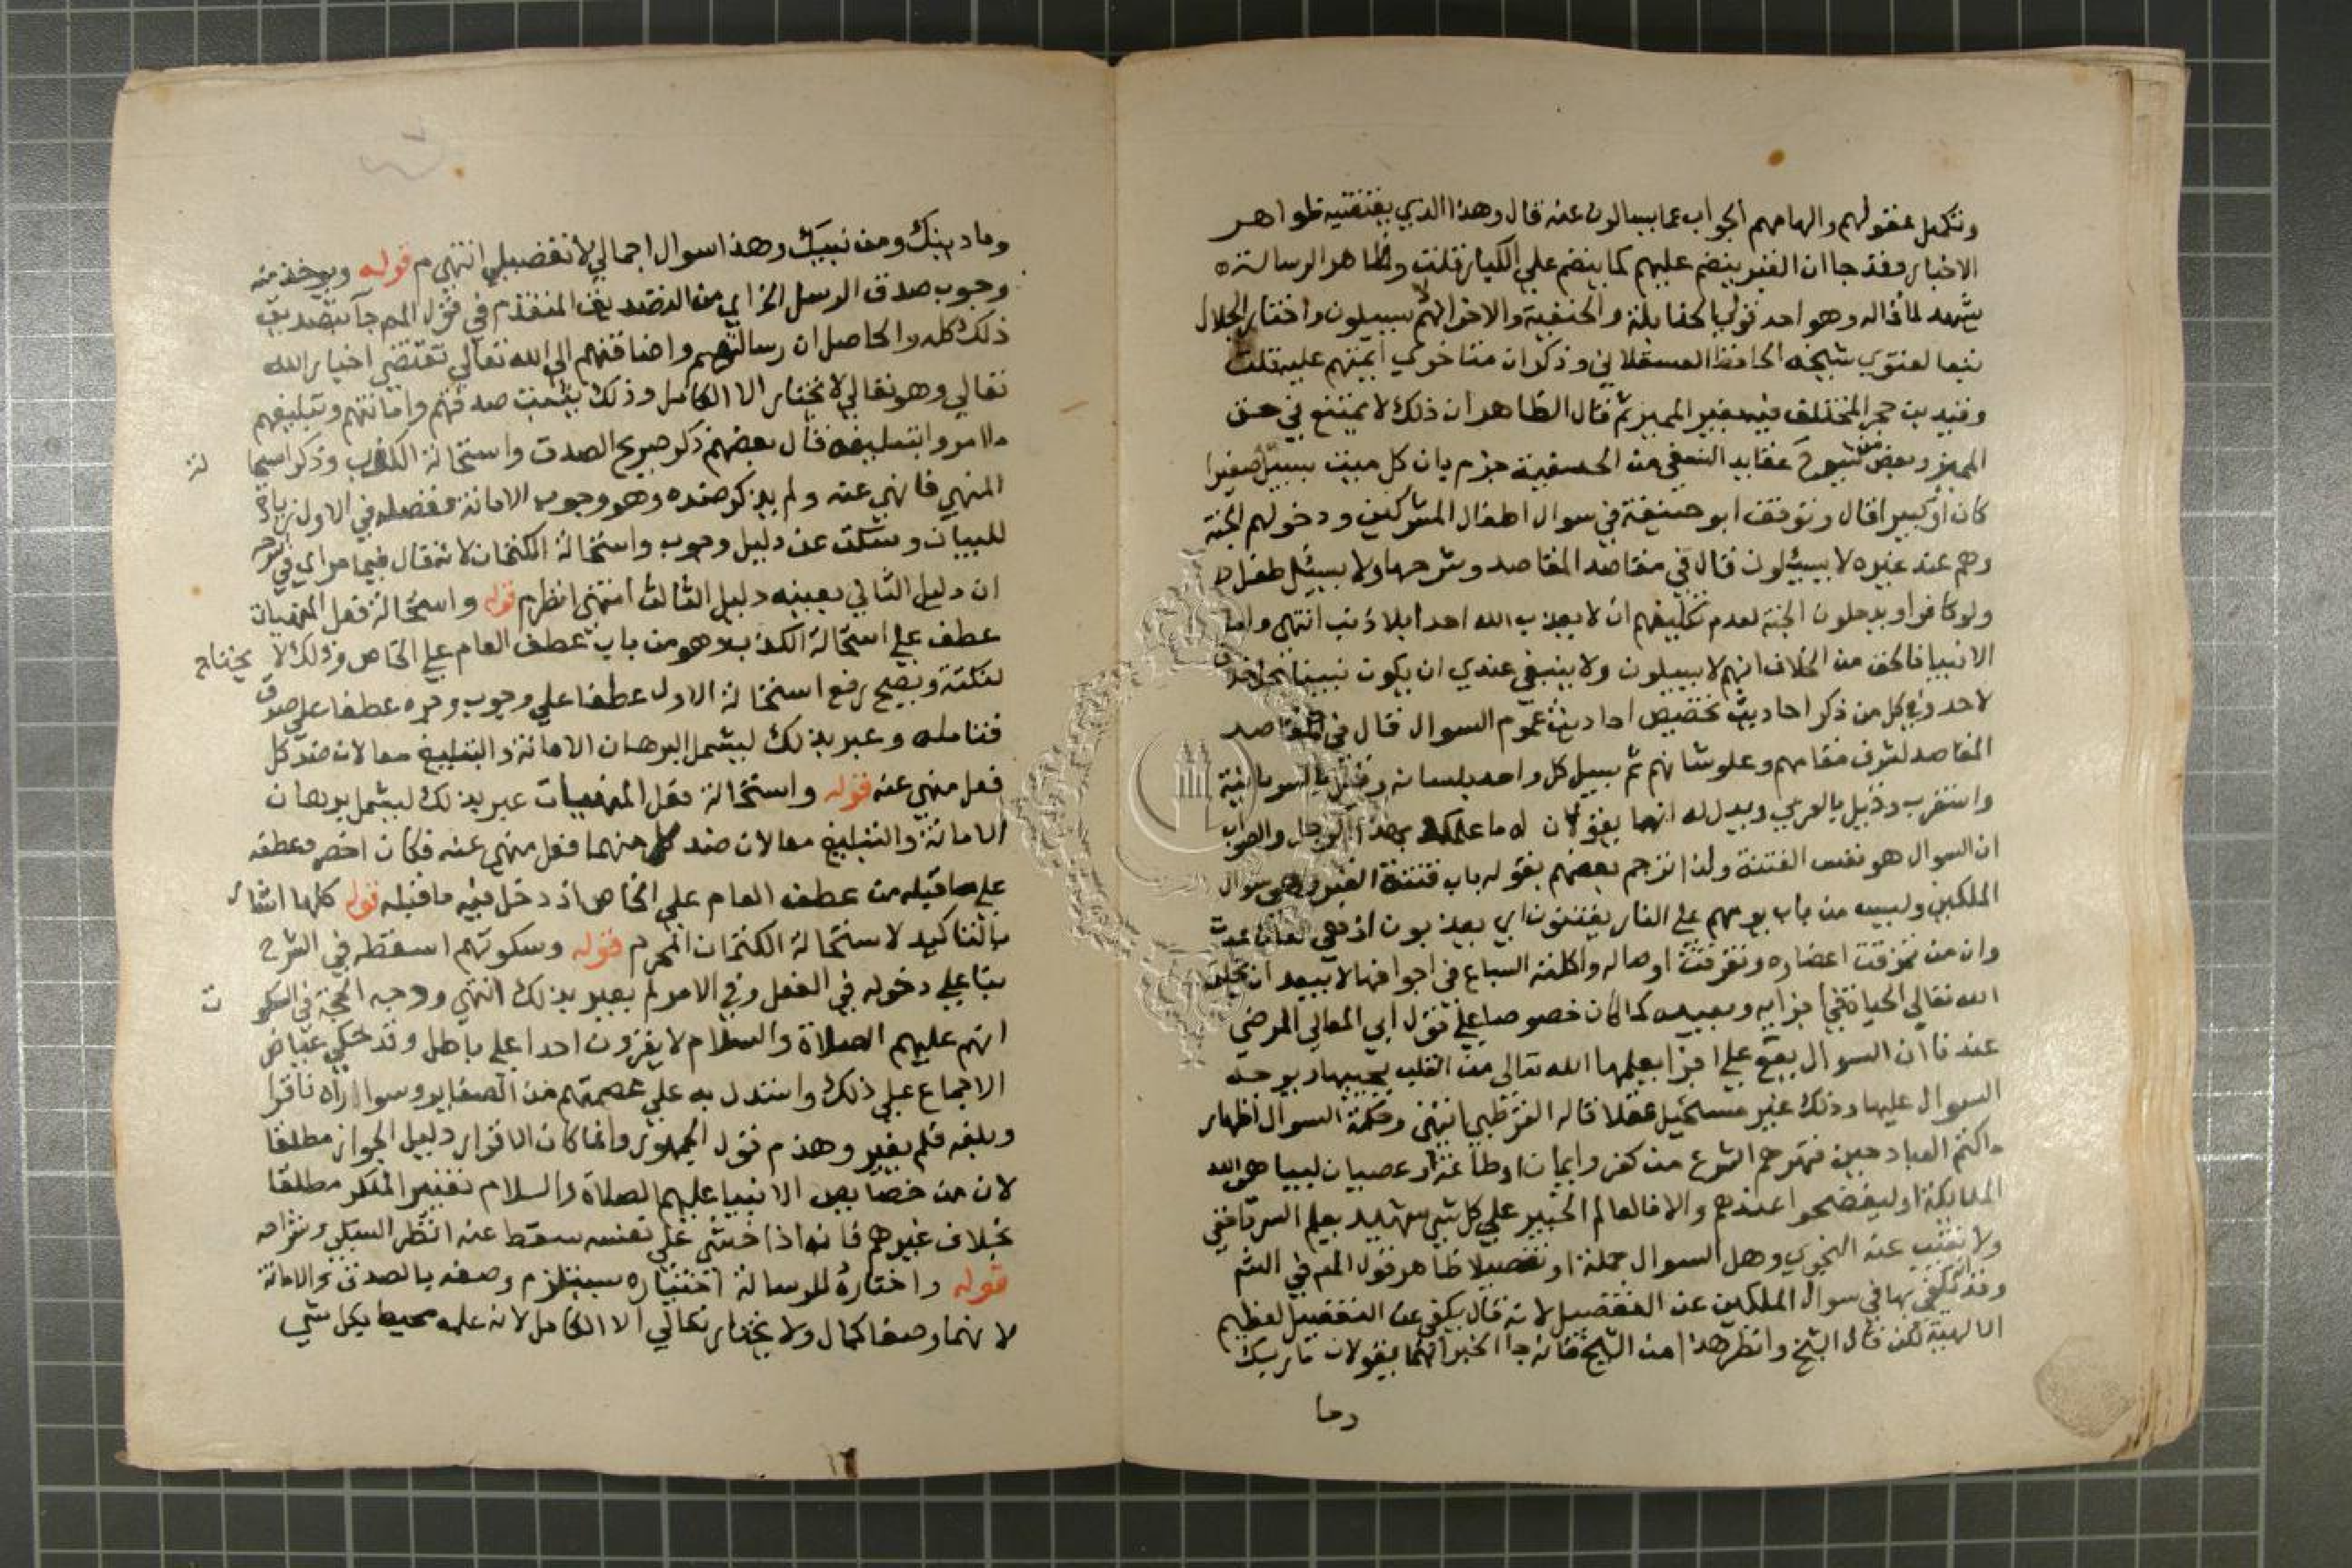 وتكمل عقولهم والهامهم الجواب عما يسالون عنه قال وهذا الذي يقتضيه ظواهر
الاخبار وقد جا ان القبر ينضم عليهم كما ينضم علي الكبار قلت وظاهر الرسالة
يشهد لما قاله وهو احد قولي الحنابلة والحنفية والاخر انهم لا يسيلون واختار الجلال
تبعا لفتوي شيخه الحافظ العسقلاني وذكر ان متاخري ايمتهم عليه قلت
وقيد بن حجر المختلف فيه بغير المميز ثم قال الظاهر ان ذلك لا يمتنع في حق
المميز وبعض شروح عقايد النسفي من الحنفية جزم بان كل ميت يسيل صغيرا
كان او كبيرا قال وتوقف ابو حنيفة في سوال اطفال المشركين ودخولهم الجنة
وهم عند غيره لا يسيلون قال في مقاصد المقاصد وشرحها ولا يسيل طفل
ولو كافرا ويدخلون الجنة لعدم تكليفهم ان لا يعذب الله احدا بلا ذنب انتهي واما
الانبيا فالحق من الخلاف انهم لا يسيلون ولا ينبغي عندي ان يكون نبينا محل خلاف
لاحد وفي كل من ذكر احاديث تخصيص احاديث عموم السوال قال في مقاصد
المقاصد لشرف مقامهم وعلو شانهم ثم يسيل كل واحد بلسانه وقيل بالسريانية
واستغرب وقيل بالعربي ويدل له انهما يقولان له ما علمك بهذا الرجل والصواب
ان السوال هو نفس الفتنة ولذا ترجم بعضهم بقوله باب فتنة القبر وهي سوال
الملكين وليسه من باب يوم هم علي النار يفتنون اي يعذبون اذ هي
وان من تمزقت اعضاوه وتفرقت اوصاله واكلته السباع في اجوافها لا يبعد ان يخلق
الله تعالي الحياة في اجزايه ويعيده كما كان خصوصا علي قول ابي المعالي المرضي
عندنا ان السوال يقع علي اجزا يعلمها الله تعالي من القلب يحييها ويوجه
السوال عليها وذلك غير مستحيل عقلا قاله القرطبي انتهي وحكمة السوال اظهار
ما كتم العباد حين قهرهم الشرع من كفر وايمان او طاعة او عصيان ليباهي الله
الملايكة او ليفضحوا عندهم والا فالعالم الخبير علي كل شي شهيد يعلم السر فاخفي
ولا تغيب عنه النجوي وهل السوال جملة او تفصيلا ظاهر قول المص في الشر
وقد تكفي بها في سوال الملكين عن التفصيل لانه قال يكفي عن التفصيل لعظيم
الالهية لكن قال الشيخ وانظر هذا من الشيخ فانه جا الخبر انهما يقولان من ربك
وما
وما دينك ومن نبيك وهذا سوال اجمالي لا تفصيلي انتهي م قوله ويوخذ منه
وجوب صدق الرسل الخ اي من التصديق المتقدم في قول المص جا بتصديق
ذلك كله والحاصل ان رسالتهم واضافتهم الي الله تعالي تقتضي اختيار الله
تعالي وهو تعالي لا يختار الا الكامل وذلك يثبت صدقهم وامانتهم وتبليغهم
ما امروا بتبليغه قال بعضهم ذكر صريح الصدق واستحالة الكذب وذكر استحالة
المنهي فانهي عنه ولم يذكر ضده وهو وجوب الامانة ففصله في الاول زيادة
للبيان وسكت عن دليل وجوب واستحالة الكتمان لانه قال فيما مر اي في شرحه
ان دليل الثاني بعينه دليل الثالث انتهي انظر م قوله واستحالة فعل المنهيات
عطف علي استحالة الكذب وهو من باب عطف العام علي الخاص وذلك لا يحتاج
لنكتة ويصح رفع استحالة الاول عطفا علي وجوب وجره عطفا علي صدق
فتامله وعبر بذلك ليشمل البرهان الامانة والتبليغ معا لان ضد كل
فعل منهي عنه قوله واستحالة فعل المنهيات عبر بذلك ليشمل برهان
الامانة والتبليغ معا لان ضد كل منهما فعل منهي عنه فكان اخصر وعطفه
علي ما قبله من عطف العام علي الخاص اذ دخل فيه ما قبله قوله كلها اشار
بالتاكيد لاستحالة الكتمان المحرم قوله وسكوتهم اسقطه في الشرح
بنا علي دخوله في الفعل وفي الامر لم يعبر بذلك انتهي ووجه الحجة في السكوت
انهم عليهم الصلاة والسلام لا يقرون احدا علي باطل وقد حكي عياض
الاجماع علي ذلك واستدل به علي عصمتهم من الصغاير وسوا راه فاقرا
وبلغه فلم يغير وهذ م قول الجمهور وانما كان الاقرار دليل الجواز مطلقا
لان من خصايص الانبيا عليهم الصلاة والسلام تغيير المنكر مطلقا
بخلاف غيرهم فانه اذا خشي علي نفسه سقط عنه انظر السبكي وشراحه
قوله واختاره للرسالة اختياره سيتلزم وصفه بالصدق والامانة
لانهما وصفا كمال ولا يختار تعالي الا الكامل لان علمه محيط بكل شي